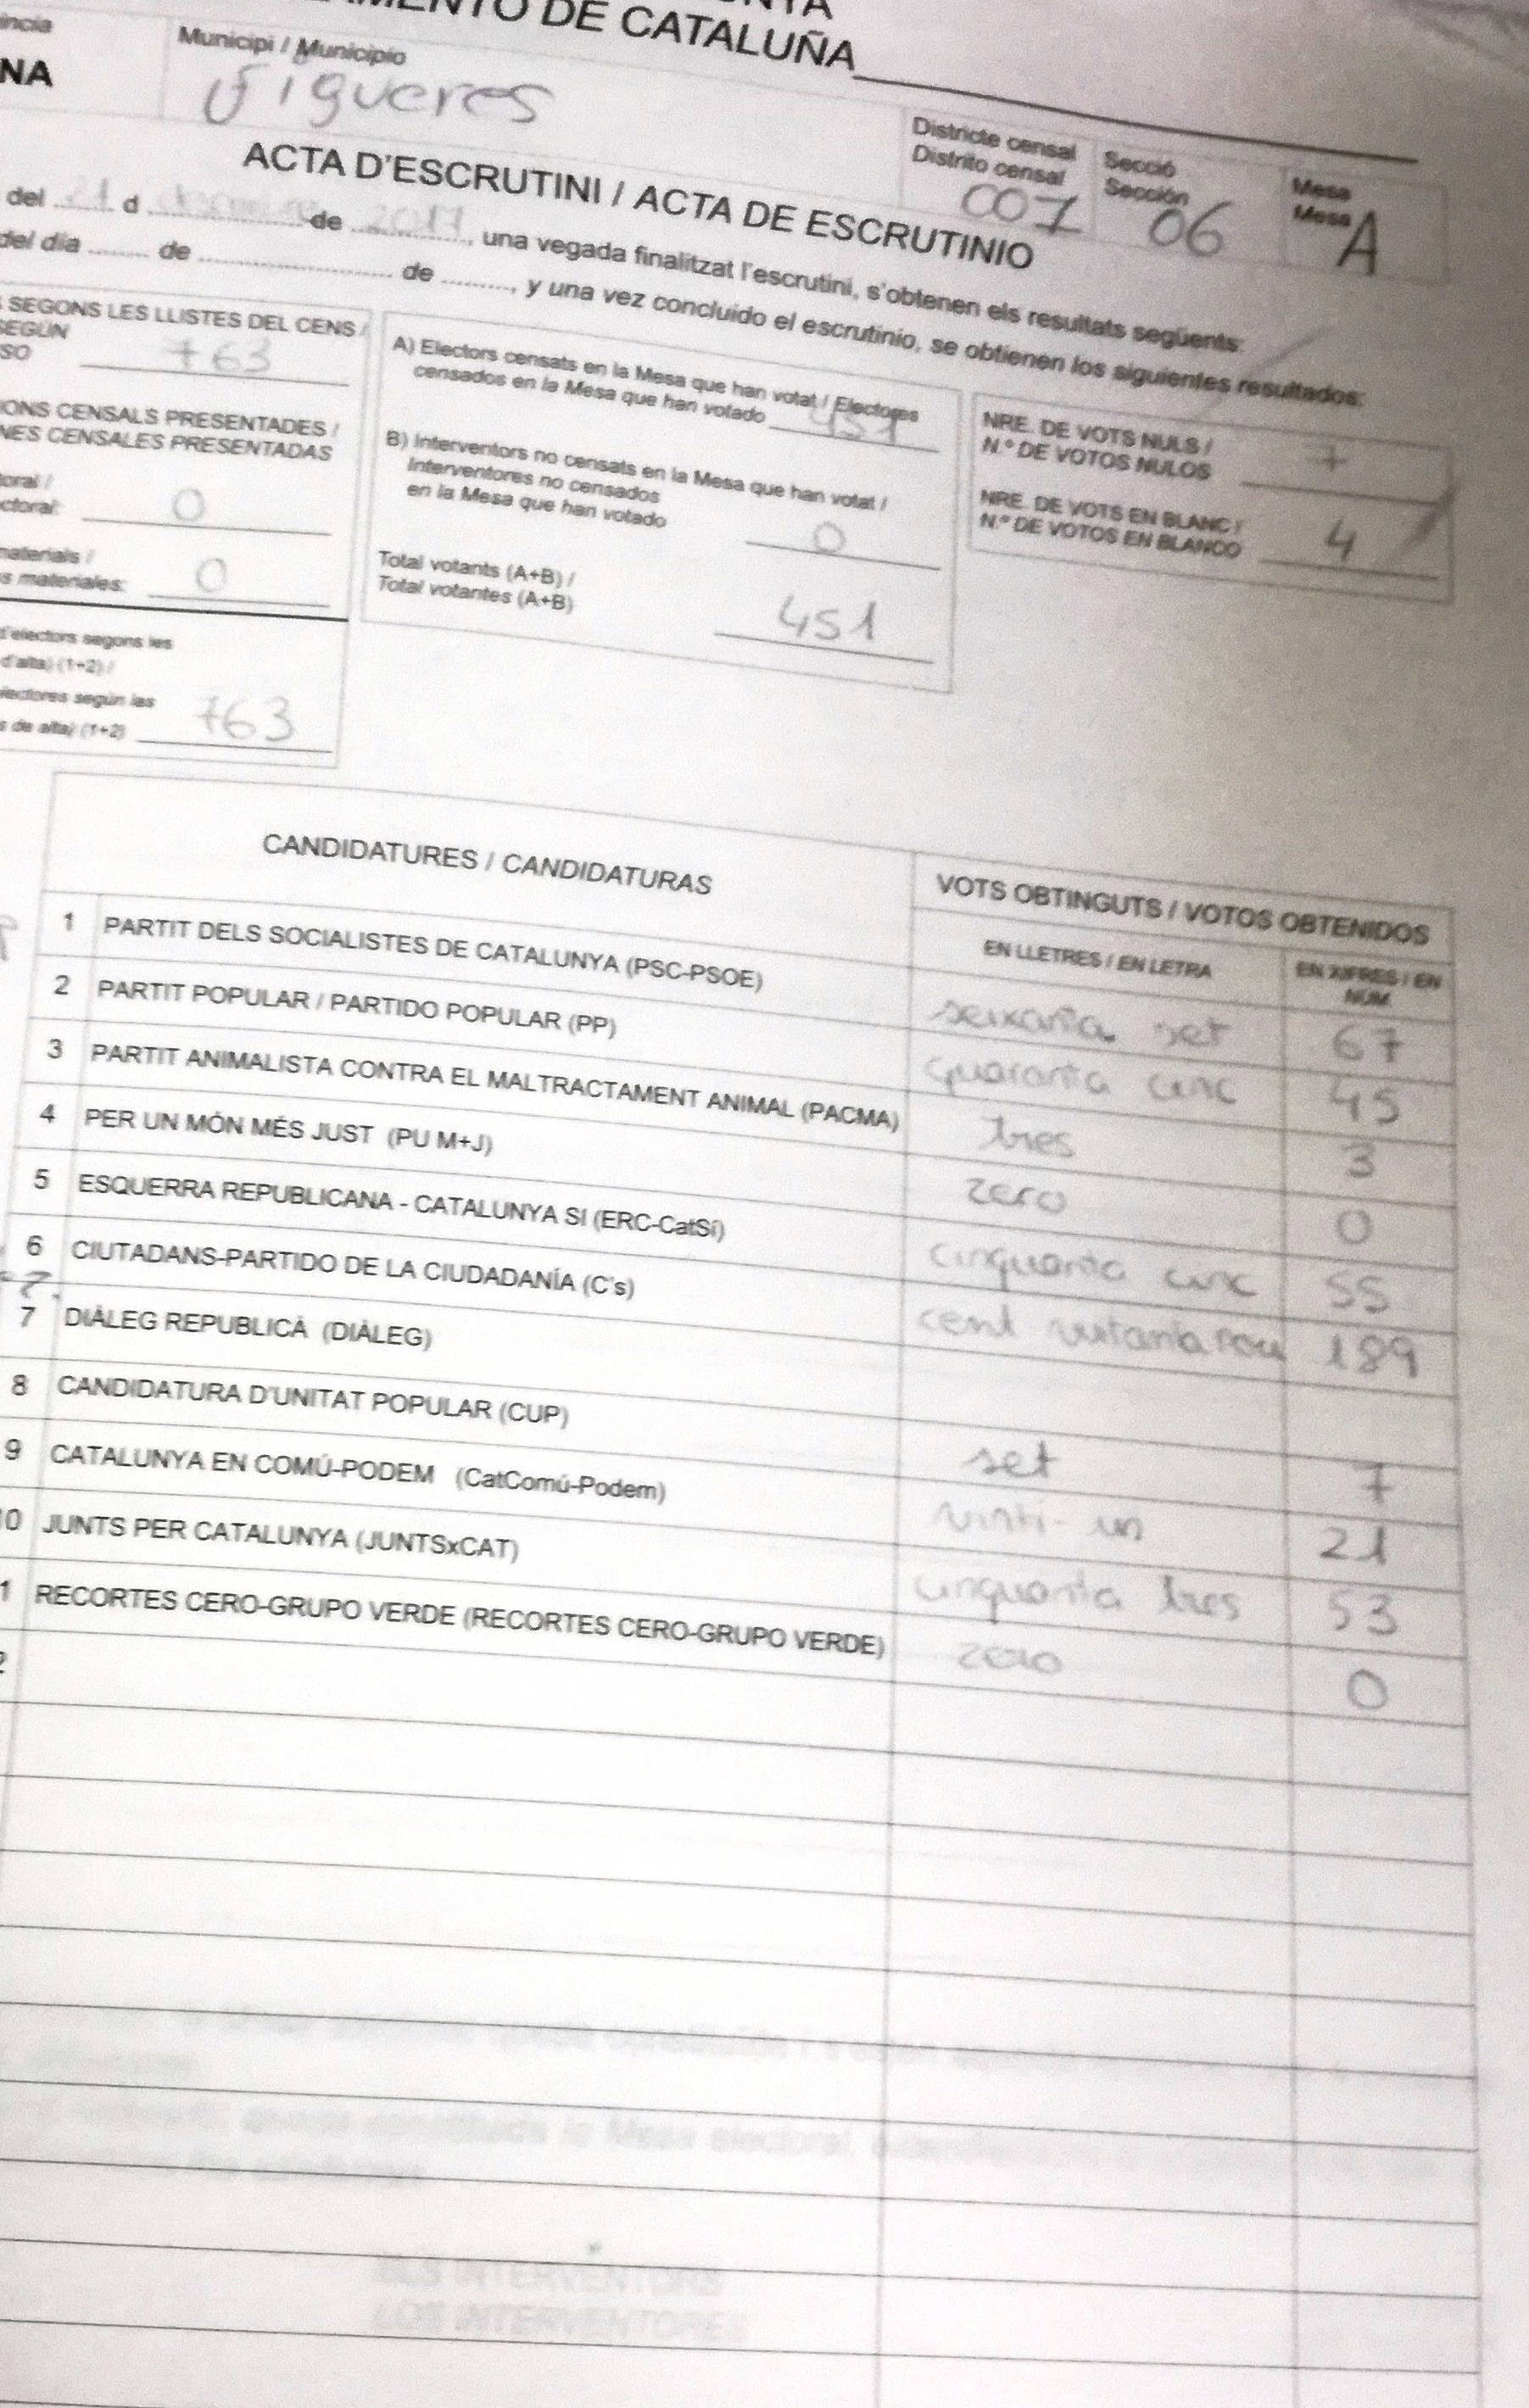 AMENTO DE CATALUÑA
Municipi / Municipio
NA
Figueres
Districte censal
Distrito censal
007
Secció
Sección
06
Mesa
Mesa
A
ACTA D'ESCRUTINI / ACTA DE ESCRUTINIO
del 21 d desembre de 2017, una vegada finalitzat l'escrutini, s'obtenen els resultats següents:
del día ........ de ........ de ........, y una vez concluido el escrutinio, se obtienen los siguientes resultados:
SEGONS LES LLISTES DEL CENS /
SEGÚN
SO 763
IONS CENSALS PRESENTADES /
NES CENSALES PRESENTADAS
toral /
ctoral: 0
materials /
s materiales: 0
d'electors segons les
d'alta) (1+2) /
lectores según las
s de alta) (1+2) 763
A) Electors censats en la Mesa que han votat / Electores
censados en la Mesa que han votado 451
B) Interventors no censats en la Mesa que han votat /
Interventores no censados
en la Mesa que han votado 0
Total votants (A+B) /
Total votantes (A+B) 451
NRE. DE VOTS NULS /
N.º DE VOTOS NULOS 7
NRE. DE VOTS EN BLANC /
N.º DE VOTOS EN BLANCO 4
CANDIDATURES / CANDIDATURAS
VOTS OBTINGUTS / VOTOS OBTENIDOS
EN LLETRES / EN LETRA
EN XIFRES / EN NÚM.
1 PARTIT DELS SOCIALISTES DE CATALUNYA (PSC-PSOE) seixanta set 67
2 PARTIT POPULAR / PARTIDO POPULAR (PP) quaranta cinc 45
3 PARTIT ANIMALISTA CONTRA EL MALTRACTAMENT ANIMAL (PACMA) tres 3
4 PER UN MÓN MÉS JUST (PU M+J) zero 0
5 ESQUERRA REPUBLICANA - CATALUNYA SI (ERC-CatSí) cinquanta cinc 55
6 CIUTADANS-PARTIDO DE LA CIUDADANÍA (C's) cent vuitanta nou 189
7 DIÀLEG REPUBLICÀ (DIÀLEG)
8 CANDIDATURA D'UNITAT POPULAR (CUP) set 7
9 CATALUNYA EN COMÚ-PODEM (CatComú-Podem) vinti-un 21
10 JUNTS PER CATALUNYA (JUNTSxCAT) cinquanta tres 53
1 RECORTES CERO-GRUPO VERDE (RECORTES CERO-GRUPO VERDE) zero 0
2
ELS INTERVENTORS
LOS INTERVENTORES